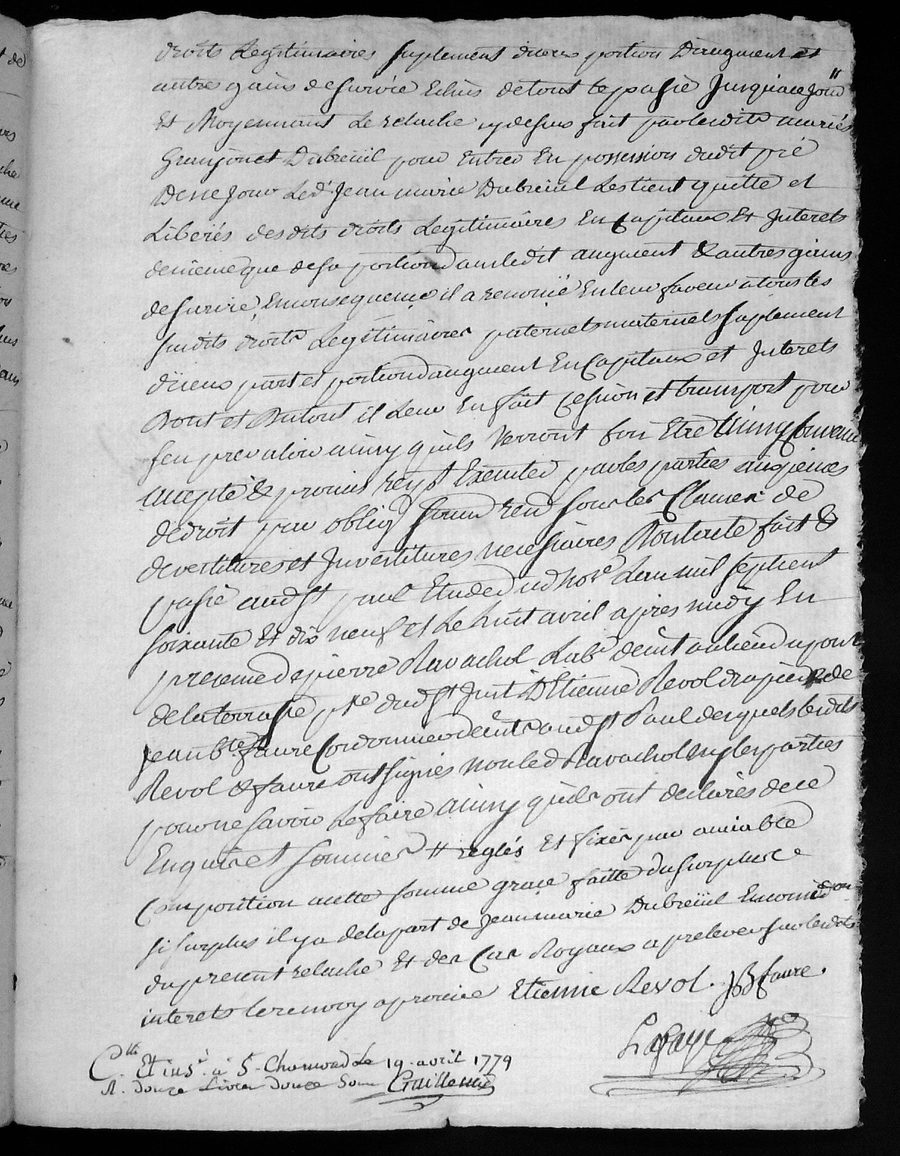 droits Legitimaires suplement diceux portion Daugment et
autres gains de survie Echus de tout le passé Jusqua ce jour //
Et Moyennant Le relache cy dessus fait par lesdits mariés
Granjon et Dubreüil pour Entrer En possession dudit pré
De ce jour Led. Jean marie Dubreüil Les tient quitte et
Liberés desdits droits Legitimaires En Capitaux Et Interets
de meme que de sa portion dans ledit augment & autres gains
de survie, En consequence il a renoncé En leur faveur a tous les
susdits droits Legitimaires paternels maternels suplement
diceux part et portion daugment En Capitaux et Interets
Dont et Du tout il Leur En fait Cession et transport pour
sen prevaloir ainsy quils verront bon Etre Ainsy Convenu
accepté & promis Executer par les parties aux peines
de droit par oblig. soum. ren. sous les Clauses de
devetitures et Invetitures necessaires Dont acte fait &
passé aud. st paul Etude dud. no.re Lan mil sept cent
soixante Et dix neuf et Le huit avril apres midy En
presence de pierre Ravachol Lab.r dem.t au lieu du
de la terrasse p.sse dud. st Just D'Etienne Revol de
Jean b.te faure Cordonnier dem.t aud. st Paul desquels lesdits
Revol & faure ont signés non led. Ravachol ny les parties
pour ne savoir Le faire ainsy quils ont declarés de ce
Enquis et sommés // reglés Et fixés par amiable
Composition a cette somme grace faitte du surplus
si surplus il y a de la part de Jean marie Dubreüil En
du present relache Et des Cas Royaux a prelever sur lesdits
interets Etienne Revol. JB faure.
Lafaye
C.lle Et ins.é à S. Chamond Le 19 avril 1779
R. douze Livres douze Sous